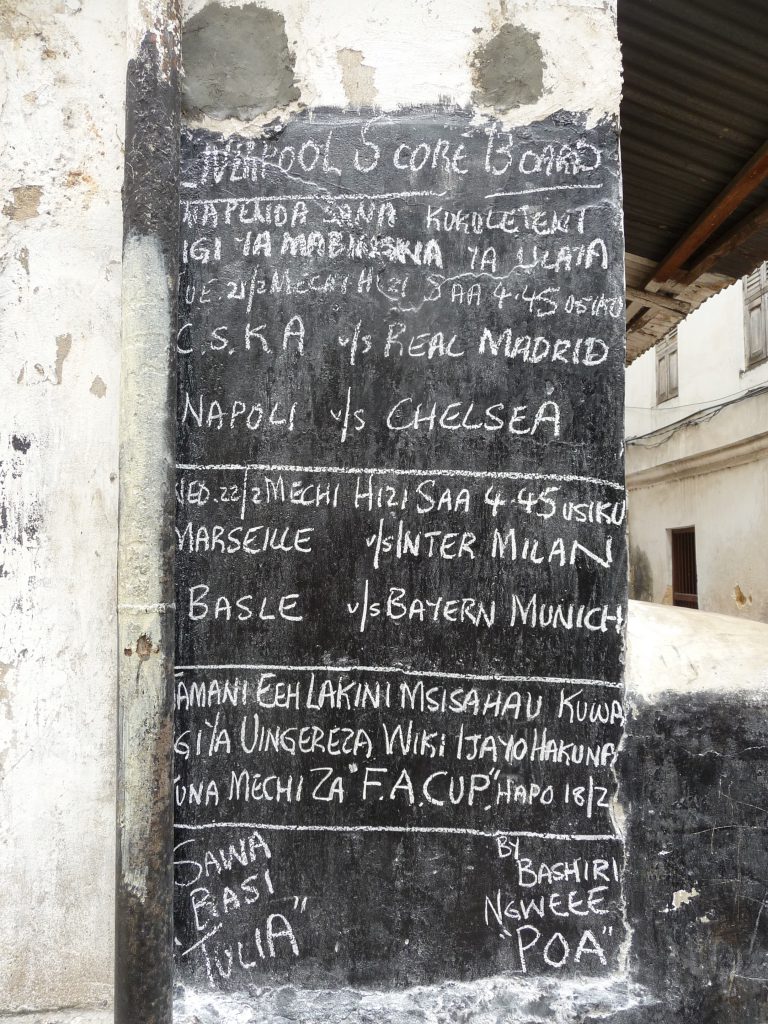 LIVERPOOL SCORE BOARD
NAPENDA SANA KUKULETENI
IGI YA MABINGWA YA ULAYA
UE. 21/2 MECHI HIZI SAA 4.45 USIKU
C.S.K.A v/s REAL MADRID
NAPOLI v/s CHELSEA
WED. 22/2 MECHI HIZI SAA 4.45 USIKU
MARSEILLE v/s INTER MILAN
BASLE v/s BAYERN MUNICH
JAMANI EEH LAKINI MSISAHAU KUWA
IGI YA UINGEREZA WIKI IJAYO HAKUNA
TUNA MECHI ZA "F.A.CUP." HAPO 18/2
SAWA
BASI
"TULIA"
BY
BASHIRI
NGWEEE
"POA"